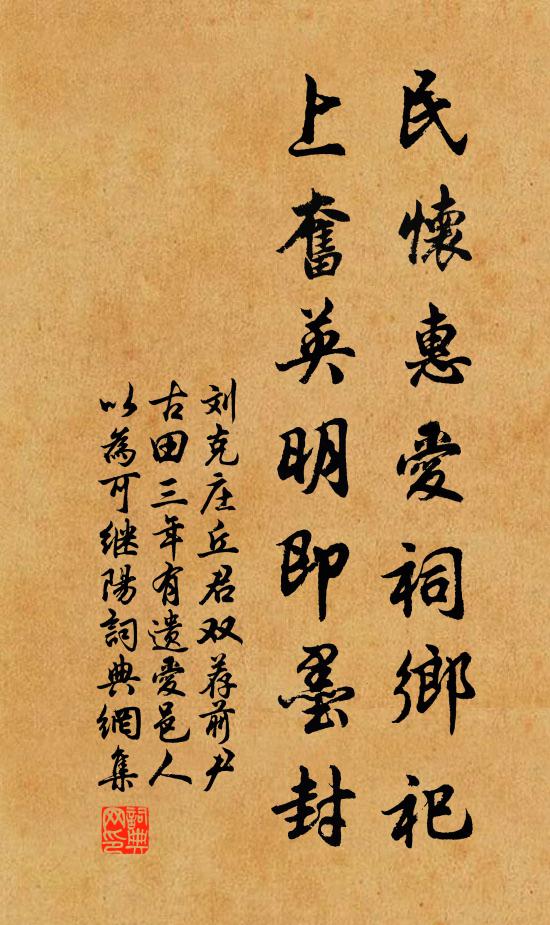 民懷惠愛祠鄉祀
上奮英明即墨封
刘克庄丘君双荐前尹
古田三年有遗愛邑人
以為可继陽詞典網集
詞典
网印